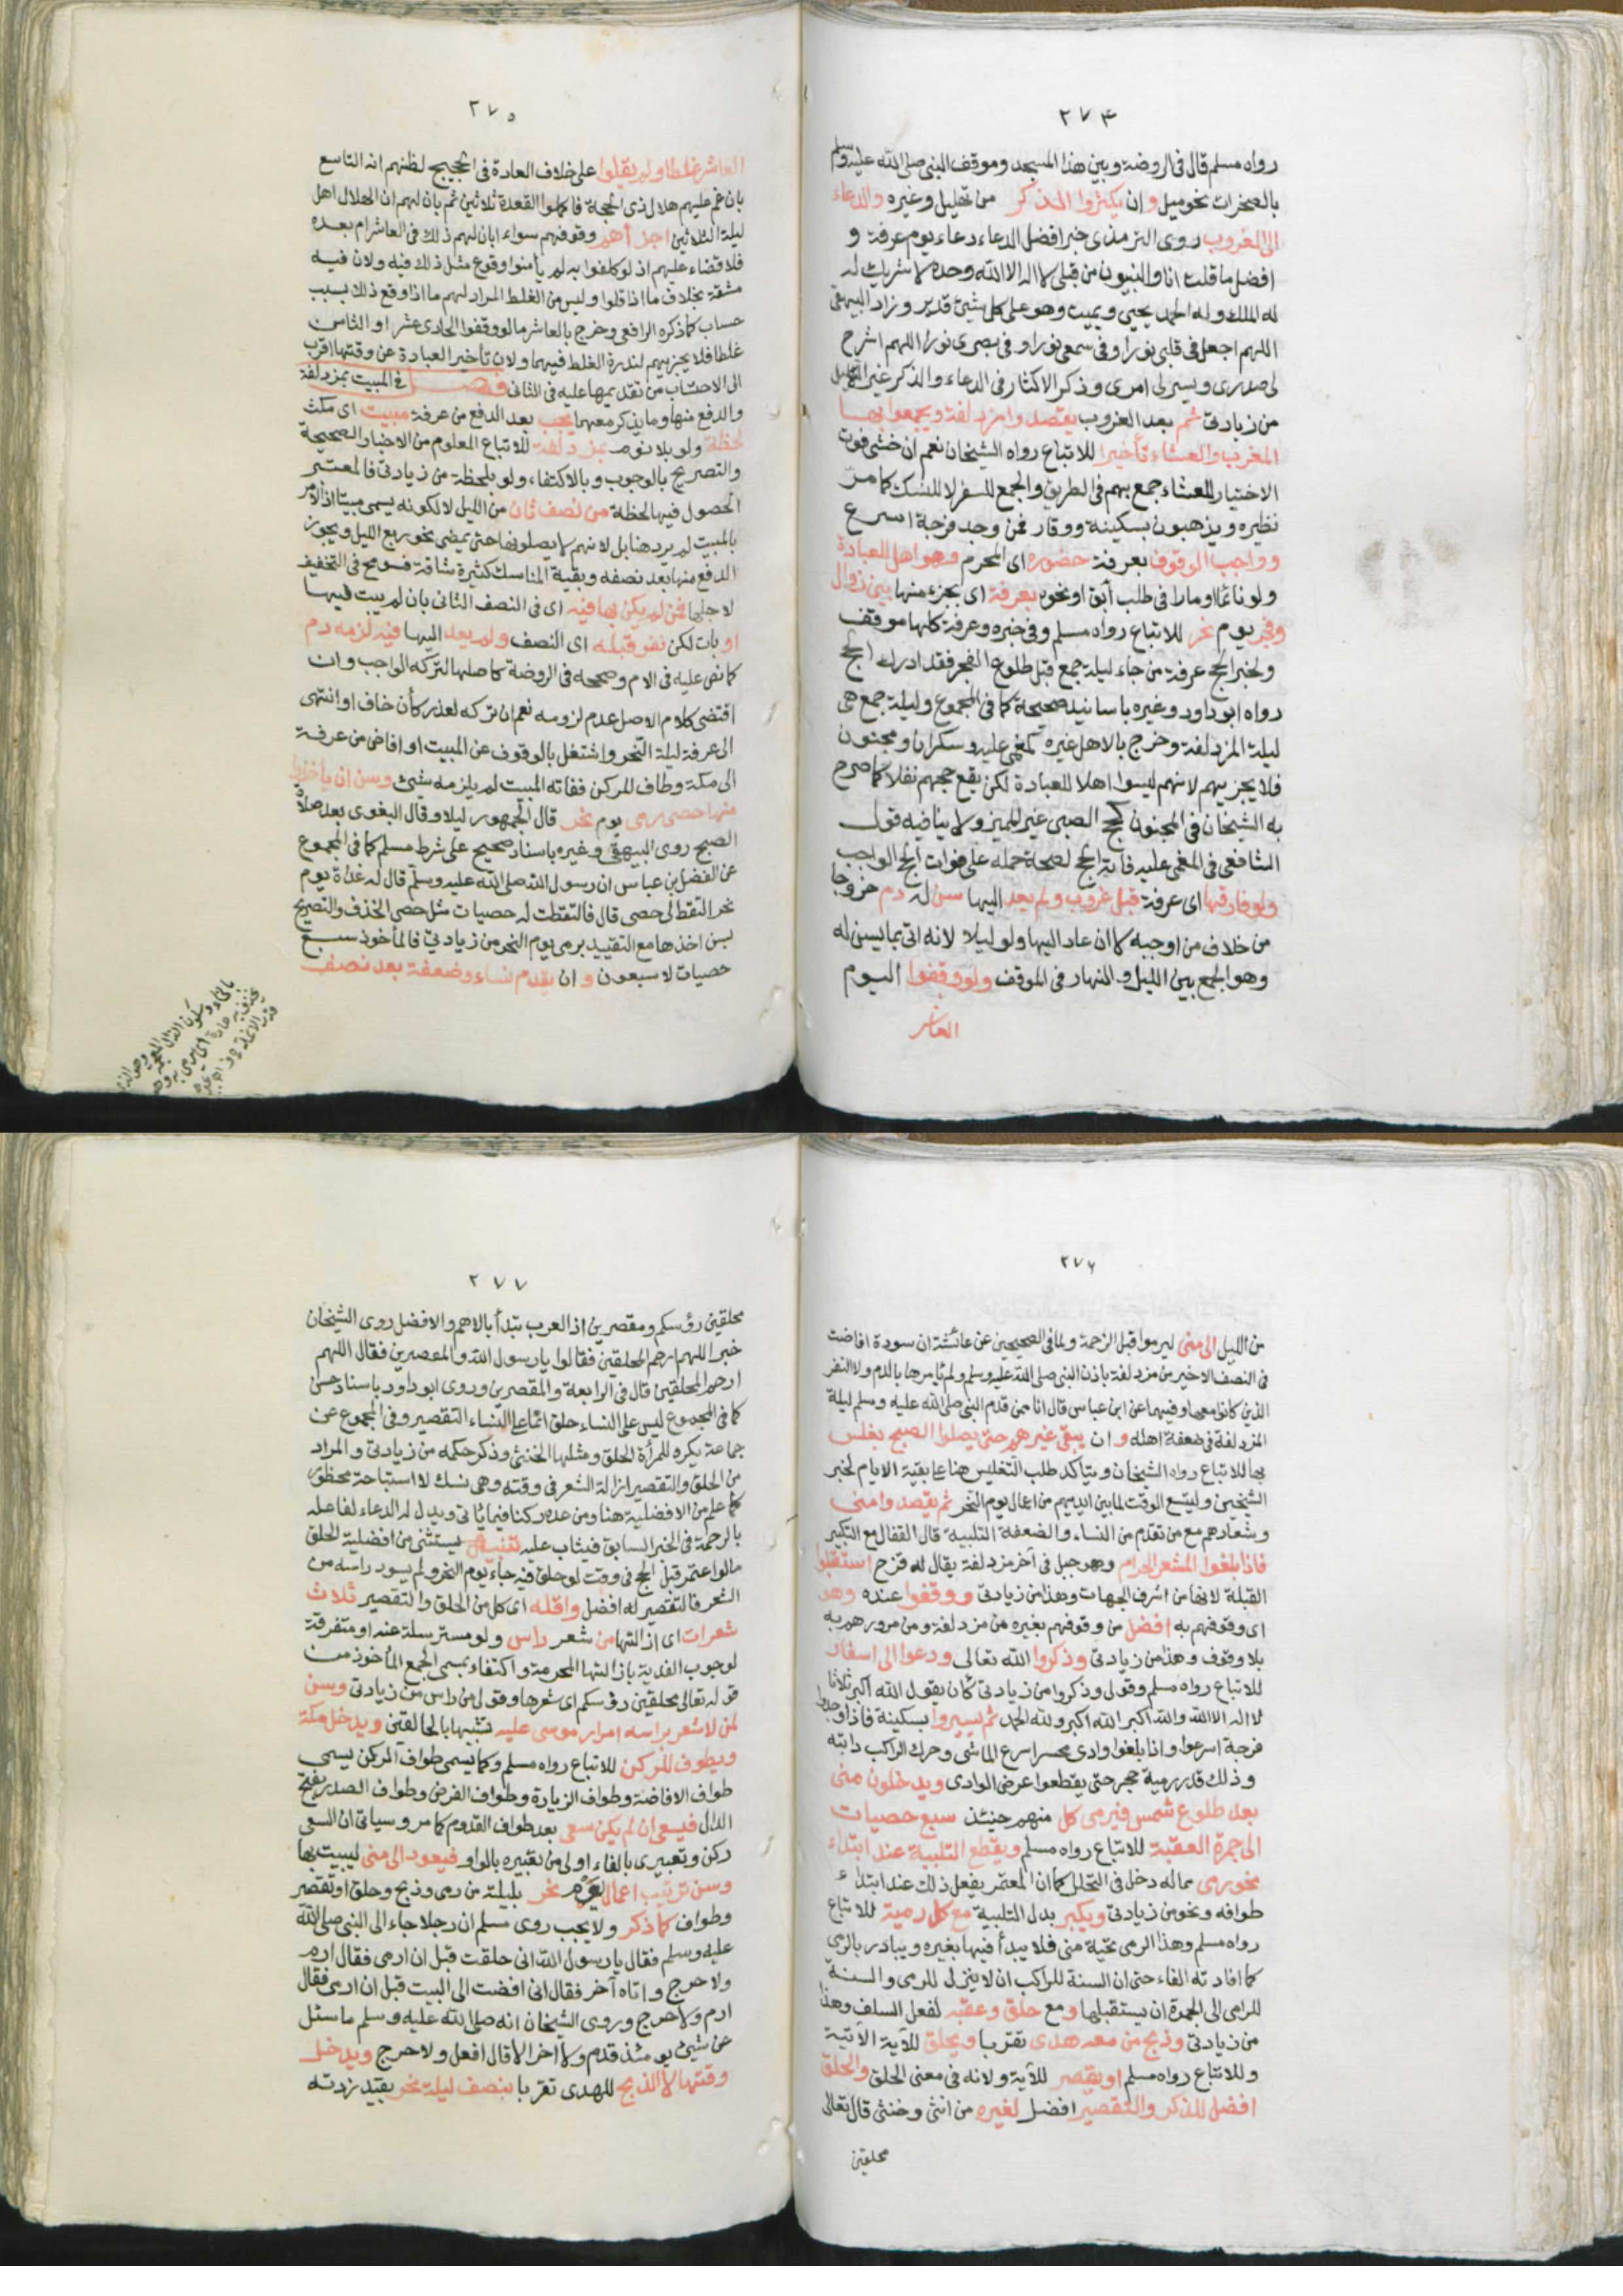 ٢٧٤
رواه مسلم قال فى الروضة وبين هذا المسجد وموقف النبى صلى الله عليه وسلم
بالصخرات نحو ميل وان يكثروا الذكر من تهليل وغيره والدعاء
الى الغروب روى الترمذى خبر افضل الدعاء دعاء يوم عرفة و
افضل ما قلت انا والنبيون من قبلى لا اله الا الله وحده لا شريك له
له الملك وله الحمد يحيى ويميت وهو على كل شيئ قدير وزاد البيهقى
اللهم اجعل فى قلبى نورا وفى سمعى نورا وفى بصرى نورا اللهم اشرح
لى صدرى ويسر لى امرى وذكر الاكثار فى الدعاء والذكر غير التهليل
من زيادتى ثم بعد الغروب يقصدوا مزدلفة ويجمعوا بها
المغرب والعشاء تأخيرا للاتباع رواه الشيخان نعم ان خشى فوت
الاختيار للعشاء جمع بهم فى الطريق والجمع للسفر لا للنسك كما مر
نظيره ويذهبون بسكينة ووقار فمن وجد فرجة اسرع
وواجب الوقوف بعرفة حضوره اى المحرم وهو اهل للعبادة
ولو نائما او مارا فى طلب آبق او نحوه بعرفة اى بجزء منها بين زوال
وفجر يوم نحر للاتباع رواه مسلم وفى خبره وعرفة كلها موقف
ولخبر الحج عرفة من جاء ليلة جمع قبل طلوع الفجر فقد ادرك الحج
رواه ابو داود وغيره باسانيد صحيحة كما فى المجموع وليلة جمع هى
ليلة المزدلفة وخرج بالاهل غيره كمغمى عليه وسكران ومجنون
فلا يجزيهم لانهم ليسوا اهلا للعبادة لكن يقع حجهم نفلا كما صرح
به الشيخان فى المجنون كحج الصبى غير المميز ولا ينافيه قول
الشافعى فى المغمى عليه فاته الحج لصحة حمله على فوات الحج الواجب
ولو فارقها اى عرفة قبل غروب ولم يعد اليها سن له دم خروجا
من خلاف من اوجبه لا ان عاد اليها ولو ليلا لانه اتى بما يسن له
وهو الجمع بين الليل والنهار فى الموقف ولو وقفوا اليوم
العاشر
٢٧٥
العاشر غلطا ولم يقلوا على خلاف العادة فى الحجيج لظنهم انه التاسع
بان غم عليهم هلال ذى الحجة فاكملوا القعدة ثلاثين ثم بان لهم ان الهلال اهل
ليلة الثلاثين اجزأهم وقوفهم سواء ابان لهم ذلك فى العاشر ام بعده
فلا قضاء عليهم اذ لو كلفوا به لم يأمنوا وقوع مثل ذلك فيه ولان فيه
مشقة بخلاف ما اذا قلوا وليس من الغلط المراد لهم ما اذا وقع ذلك بسبب
حساب كما ذكره الرافعى وخرج بالعاشر ما لو وقفوا الحادى عشر او الثامن
غلطا فلا يجزيهم لندرة الغلط فيهما ولان تأخير العبادة عن وقتها اقرب
الى الاحتساب من تقديمها عليه فى الثانى فصل فى المبيت بمزدلفة
والدفع منها وما يذكر معهما يجب بعد الدفع من عرفة مبيت اى مكث
لحظة ولو بلا نوم بمزدلفة للاتباع المعلوم من الاخبار الصحيحة
والتصريح بالوجوب وبالاكتفاء ولو بلحظة من زيادتى فالمعتبر
الحصول فيها لحظة من نصف ثان من الليل لا لكونه يسمى مبيتا اذ الامر
بالمبيت لم يرد هنا بل لانهم لا يصلونها حتى يمضى نحو ربع الليل ويجوز
الدفع منها بعد نصفه وبقية المناسك كثيرة شاقة فسومح فى التخفيف
لاجلها فمن لم يكن بها فيه اى فى النصف الثانى بان لم يبت فيها
او بات لكن نفر قبله اى النصف ولم يعد اليها فيه لزمه دم
كما نص عليه فى الام وصححه فى الروضة كاصلها لتركه الواجب وان
اقتضى كلام الاصل عدم لزومه نعم ان تركه لعذر كأن خاف او انتهى
الى عرفة ليلة النحر واشتغل بالوقوف عن المبيت او افاض من عرفة
الى مكة وطاف للركن ففاته المبيت لم يلزمه شيئ وسن ان يأخذوا
منها حصى رمى يوم نحر قال الجمهور ليلا وقال البغوى بعد صلاة
الصبح روى البيهقى وغيره باسناد صحيح على شرط مسلم كما فى المجموع
عن الفضل بن عباس ان رسول الله صلى الله عليه وسلم قال له غداة يوم
نحر التقط لى حصى قال فالتقطت له حصيات مثل حصى الخذف والتصريح
بسن اخذها مع التقييد برمى يوم النحر من زيادتى فالمأخوذ سبع
حصيات لا سبعون وان يقدم نساء وضعفة بعد نصف
٢٧٦
من الليل الى منى ليرموا قبل الزحمة ولما فى الصحيحين عن عائشة ان سودة افاضت
فى النصف الاخير من مزدلفة باذن النبى صلى الله عليه وسلم ولم يأمرها بالدم ولا النفر
الذين كانوا معها وفيهما عن ابن عباس قال انا ممن قدم النبى صلى الله عليه وسلم ليلة
المزدلفة فى ضعفة اهله وان يبقى غيرهم حتى يصلوا الصبح بغلس
بها للاتباع رواه الشيخان ويتأكد طلب التغليس هنا على بقية الايام لخبر
الشيخين وليتسع الوقت لما بين ايديهم من اعمال يوم النحر ثم يقصدوا منى
وشعارهم مع من تقدم من النساء والضعفة التلبية قال القفال مع التكبير
فاذا بلغوا المشعر الحرام وهو جبل فى آخر مزدلفة يقال له قزح استقبلوا
القبلة لانها من اشرف الجهات وهذا من زيادتى ووقفوا عنده وهو
اى وقوفهم به افضل من وقوفهم بغيره من مزدلفة ومن مرورهم به
بلا وقوف وهذا من زيادتى وذكروا الله تعالى ودعوا الى اسفار
للاتباع رواه مسلم وقولى وذكروا من زيادتى كأن يقول الله اكبر ثلاثا
لا اله الا الله والله اكبر الله اكبر ولله الحمد ثم يسيروا بسكينة فاذا وجدوا
فرجة اسرعوا واذا بلغوا وادى محسر اسرع الماشى وحرك الراكب دابته
وذلك قدر رمية حجر حتى يقطعوا عرض الوادى ويدخلون منى
بعد طلوع شمس فيرمى كل منهم حينئذ سبع حصيات
الى جمرة العقبة للاتباع رواه مسلم ويقطع التلبية عند ابتداء
نحو رمى مما له دخل فى التحلل كما ان المعتمر يفعل ذلك عند ابتداء
طوافه ونحو من زيادتى ويكبر بدل التلبية مع كل رمية للاتباع
رواه مسلم وهذا الرمى تحية منى فلا يبدأ فيها بغيره ويبادر بالرمى
كما افادته الفاء حتى ان السنة للراكب ان لا ينزل للرمى والسنة
للرامى الى الجمرة ان يستقبلها ومع حلق وعقبه لفعل السلف وهذا
من زيادتى وذبح من معه هدى تقربا ويحلق للآية الآتية
وللاتباع رواه مسلم او يقصر للآية ولانه فى معنى الحلق والحلق
افضل للذكر والتقصير افضل لغيره من انثى وخنثى قال تعالى
محلقين
٢٧٧
محلقين رؤسكم ومقصرين اذ العرب تبدأ بالاهم والافضل روى الشيخان
خبر اللهم ارحم المحلقين فقالوا يا رسول الله والمقصرين فقال اللهم
ارحم المحلقين قال فى الرابعة والمقصرين وروى ابو داود باسناد حسن
كما فى المجموع ليس على النساء حلق انما على النساء التقصير وفى المجموع عن
جماعة يكره للمرأة الحلق ومثلها الخنثى وذكر حكمه من زيادتى والمراد
من الحلق والتقصير ازالة الشعر فى وقته وهى نسك لا استباحة محظور
كما علم من الافضلية هنا ومن عده ركنا فيما يأتى ويدل له الدعاء لفاعله
بالرحمة فى الخبر السابق فيثاب عليه تنبيه يستثنى من افضلية الحلق
ما لو اعتمر قبل الحج فى وقت لو حلق فيه جاء يوم النحر ولم يسود راسه من
الشعر فالتقصير له افضل واقله اى كل من الحلق والتقصير ثلاث
شعرات اى ازالتها من شعر راس ولو مسترسلة عنه او متفرقة
لوجوب الفدية بازالتها المحرمة واكتفاء بمسمى الجمع المأخوذ من
قوله تعالى محلقين رؤسكم اى شعرها وقولى من راس من زيادتى وسن
لمن لا شعر براسه امرار موسى عليه تشبيها بالحالقين ويدخل مكة
ويطوف للركن للاتباع رواه مسلم وكما يسمى طواف الركن يسمى
طواف الافاضة وطواف الزيارة وطواف الفرض وطواف الصدر بفتح
الدال فيسعى ان لم يكن سعى بعد طواف القدوم كما مر وسياتى ان السعى
ركن وتعبيرى بالفاء اولى من تعبيره بالواو فيعود الى منى ليبيت بها
وسن ترتيب اعمال يوم نحر بليلته من رمى وذبح وحلق او تقصير
وطواف كما ذكر ولا يجب روى مسلم ان رجلا جاء الى النبى صلى الله
عليه وسلم فقال يا رسول الله انى حلقت قبل ان ارمى فقال ارم
ولا حرج واتاه آخر فقال انى افضت الى البيت قبل ان ارمى فقال
ارم ولا حرج وروى الشيخان انه صلى الله عليه وسلم ما سئل
عن شيئ يومئذ قدم ولا اخر الا قال افعل ولا حرج ويدخل
وقتها لا الذبح للهدى تقربا بنصف ليلة نحر بقيد زدته